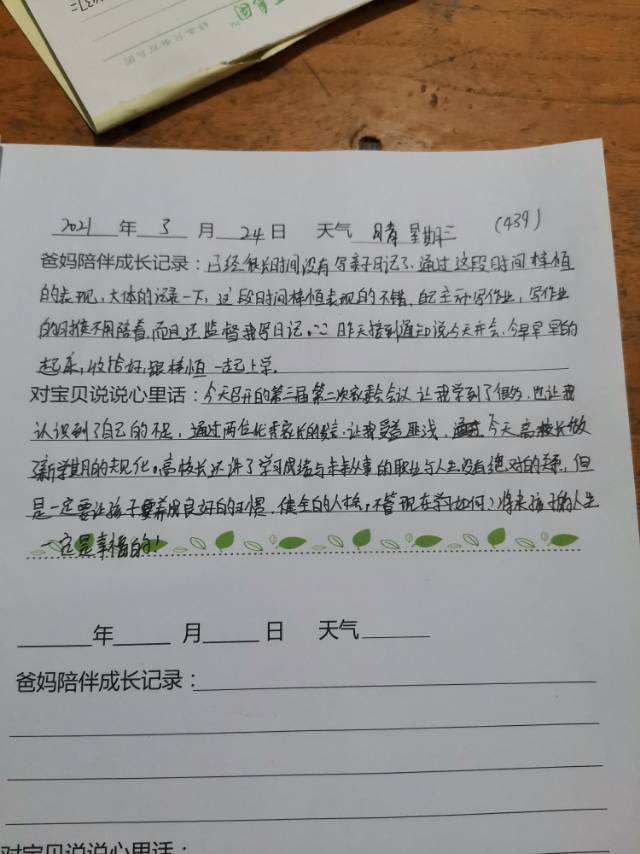 2021年3月24日 天气 晴 星期三 (439)
爸妈陪伴成长记录:已经很长时间没有写亲子日记了.通过这段时间梓恒
的表现,大体的记录一下,这段时间梓恒表现的不错.自己主动写作业,写作业
的时候不用陪着.而且还监督我写日记.昨天接到通知说今天开会.今早早早的
起床,收拾好,跟梓恒一起上学.
对宝贝说说心里话:今天召开的第三届第二次家委会会议 让我学到了很多,也让我
认识到了自己的不足,通过两位优秀家长的发言.让我受益匪浅,今天高校长做
了新学期的规化.高校长还讲了学习成绩与未来从事的职业与人生没有绝对的关系,但
是一定要让孩子养成良好的习惯.健全的人格,不管现在学习如何,将来孩子的人生
一定是幸福的!
年 月 日 天气
爸妈陪伴成长记录:
对宝贝说说心里话: